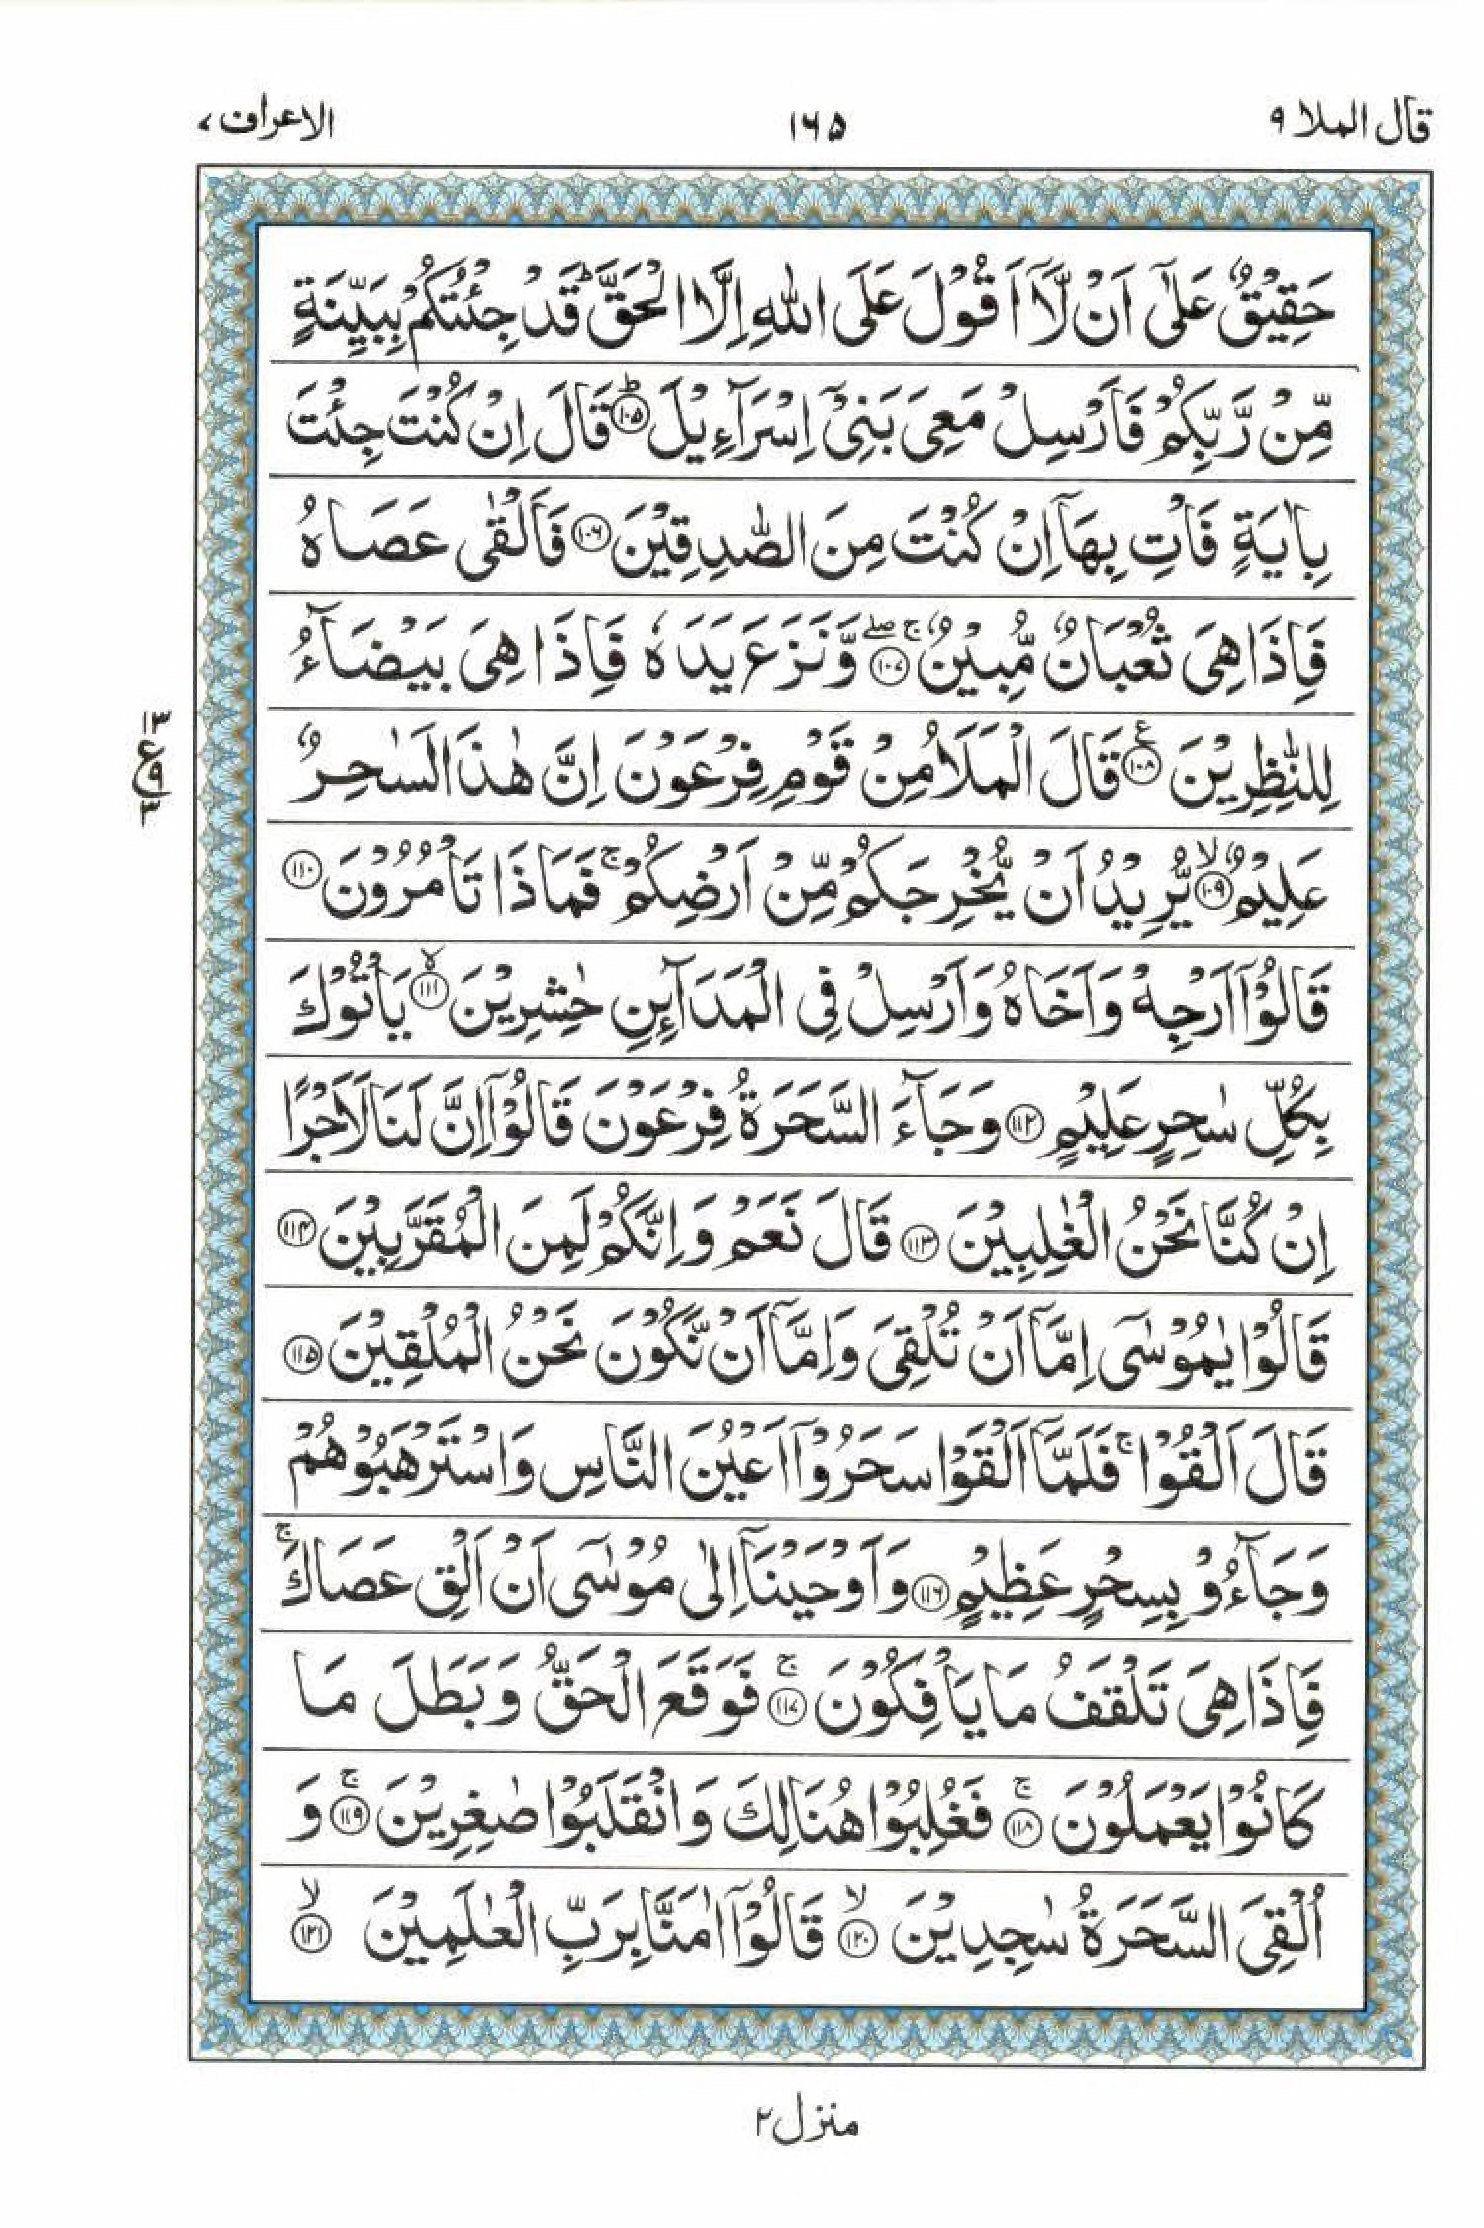 قال الملا ۹
۱۶۵
الاعراف ۷
حَقِیْقٌ عَلٰۤی اَنْ لَّاۤ اَقُوْلَ عَلَی اللّٰهِ اِلَّا الْحَقَّ ؕ قَدْ جِئْتُكُمْ بِبَیِّنَةٍ
مِّنْ رَّبِّكُمْ فَاَرْسِلْ مَعِیَ بَنِیْۤ اِسْرَآءِیْلَ ؕ۝۱۰۵ قَالَ اِنْ كُنْتَ جِئْتَ
بِاٰیَةٍ فَاْتِ بِهَاۤ اِنْ كُنْتَ مِنَ الصّٰدِقِیْنَ ۝۱۰۶ فَاَلْقٰی عَصَاهُ
فَاِذَا هِیَ ثُعْبَانٌ مُّبِیْنٌ ۚۖ۝۱۰۷ وَّ نَزَعَ یَدَهٗ فَاِذَا هِیَ بَیْضَآءُ
لِلنّٰظِرِیْنَ ۝۱۰۸ع قَالَ الْمَلَاُ مِنْ قَوْمِ فِرْعَوْنَ اِنَّ هٰذَا لَسٰحِرٌ
۱۳
ع۹
۳
عَلِیْمٌ ۙ۝۱۰۹ یُّرِیْدُ اَنْ یُّخْرِجَكُمْ مِّنْ اَرْضِكُمْ ۚ فَمَاذَا تَاْمُرُوْنَ ۝۱۱۰
قَالُوْۤا اَرْجِهْ وَ اَخَاهُ وَ اَرْسِلْ فِی الْمَدَآىِٕنِ حٰشِرِیْنَ ۙ۝۱۱۱ یَاْتُوْكَ
بِكُلِّ سٰحِرٍ عَلِیْمٍ ۝۱۱۲ وَ جَآءَ السَّحَرَةُ فِرْعَوْنَ قَالُوْۤا اِنَّ لَنَا لَاَجْرًا
اِنْ كُنَّا نَحْنُ الْغٰلِبِیْنَ ۝۱۱۳ قَالَ نَعَمْ وَ اِنَّكُمْ لَمِنَ الْمُقَرَّبِیْنَ ۝۱۱۴
قَالُوْا یٰمُوْسٰۤی اِمَّاۤ اَنْ تُلْقِیَ وَ اِمَّاۤ اَنْ نَّكُوْنَ نَحْنُ الْمُلْقِیْنَ ۝۱۱۵
قَالَ اَلْقُوْا ۚ فَلَمَّاۤ اَلْقَوْا سَحَرُوْۤا اَعْیُنَ النَّاسِ وَ اسْتَرْهَبُوْهُمْ
وَ جَآءُوْ بِسِحْرٍ عَظِیْمٍ ۝۱۱۶ وَ اَوْحَیْنَاۤ اِلٰی مُوْسٰۤی اَنْ اَلْقِ عَصَاكَ ۚ
فَاِذَا هِیَ تَلْقَفُ مَا یَاْفِكُوْنَ ۚ۝۱۱۷ فَوَقَعَ الْحَقُّ وَ بَطَلَ مَا
كَانُوْا یَعْمَلُوْنَ ۚ۝۱۱۸ فَغُلِبُوْا هُنَالِكَ وَ انْقَلَبُوْا صٰغِرِیْنَ ۚ۝۱۱۹ وَ
اُلْقِیَ السَّحَرَةُ سٰجِدِیْنَ ۙ۝۱۲۰ قَالُوْۤا اٰمَنَّا بِرَبِّ الْعٰلَمِیْنَ ۙ۝۱۲۱
منزل ۲